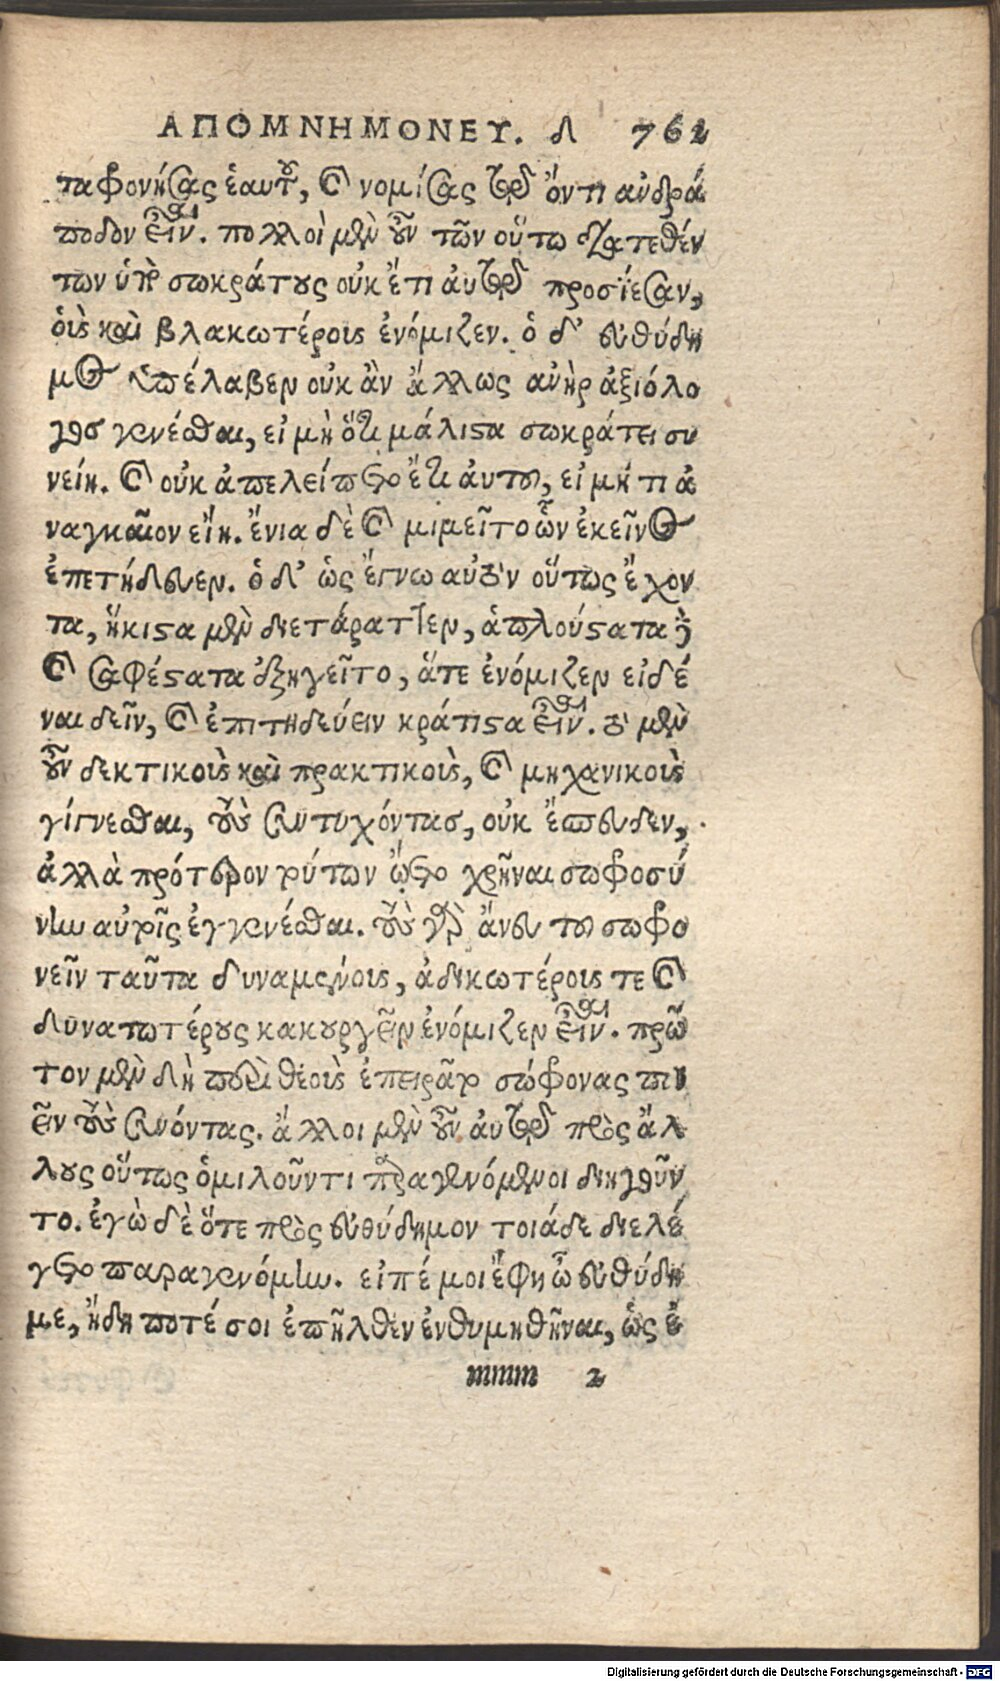 ΑΠΟΜΝΗΜΟΝΕΥ. δ 762
ταφρονήσας ἑαυτοῦ, καὶ νομίσας τῷ ὄντι ἀνδρά
ποδον εἶναι. πολλοὶ μὲν οὖν τῶν οὕτω διατεθέν
των ὑπὸ σωκράτους οὐκ ἔτι αὐτῷ προσῄεσαν,
οὓς καὶ βλακωτέρους ἐνόμιζεν. ὁ δ' εὐθύδη
μος ὑπέλαβεν οὐκ ἂν ἄλλως ἀνὴρ ἀξιόλο
γος γενέσθαι, εἰ μὴ ὅτι μάλιστα σωκράτει συ
νείη. καὶ οὐκ ἀπελείπετο ἔτι αὐτοῦ, εἰ μή τι ἀ
ναγκαῖον εἴη. ἔνια δὲ καὶ μιμεῖτο ὧν ἐκεῖνος
ἐπετήδευεν. ὁ δ' ὡς ἔγνω αὐτὸν οὕτως ἔχον
τα, ἥκιστα μὲν διετάραττεν, ἁπλούστατα δὲ
καὶ σαφέστατα ἐξηγεῖτο, ἅτε ἐνόμιζεν εἰδέ
ναι δεῖν, καὶ ἐπιτηδεύειν κράτιστα εἶναι. τὸ μὲν
οὖν δεκτικοὺς καὶ πρακτικοὺς, καὶ μηχανικοὺς
γίγνεσθαι, τοὺς συντυχόντας, οὐκ ἔσπευδεν,
ἀλλὰ πρότερον τούτων ᾤετο χρῆναι σωφροσύ
νην αὐτοῖς ἐγγενέσθαι. τοὺς γὰρ ἄνευ τοῦ σωφρο
νεῖν ταῦτα δυναμένους, ἀδικωτέρους τε καὶ
δυνατωτέρους κακουργεῖν ἐνόμιζεν εἶναι. πρῶ
τον μὲν δὴ περὶ θεοὺς ἐπειρᾶτο σώφρονας ποι
εῖν τοὺς συνόντας. ἄλλοι μὲν οὖν αὐτῷ πρὸς ἄλ
λους οὕτως ὁμιλοῦντι παραγενόμενοι διηγοῦν
το. ἐγὼ δὲ ὅτε πρὸς εὐθύδημον τοιάδε διελέ
γετο παραγενόμην. εἰπέ μοι ἔφη ὦ εὐθύδη
με, ἤδη ποτέ σοι ἐπῆλθεν ἐνθυμηθῆναι, ὡς ἐ
mmm 2
Digitalisierung gefördert durch die Deutsche Forschungsgemeinschaft - DFG